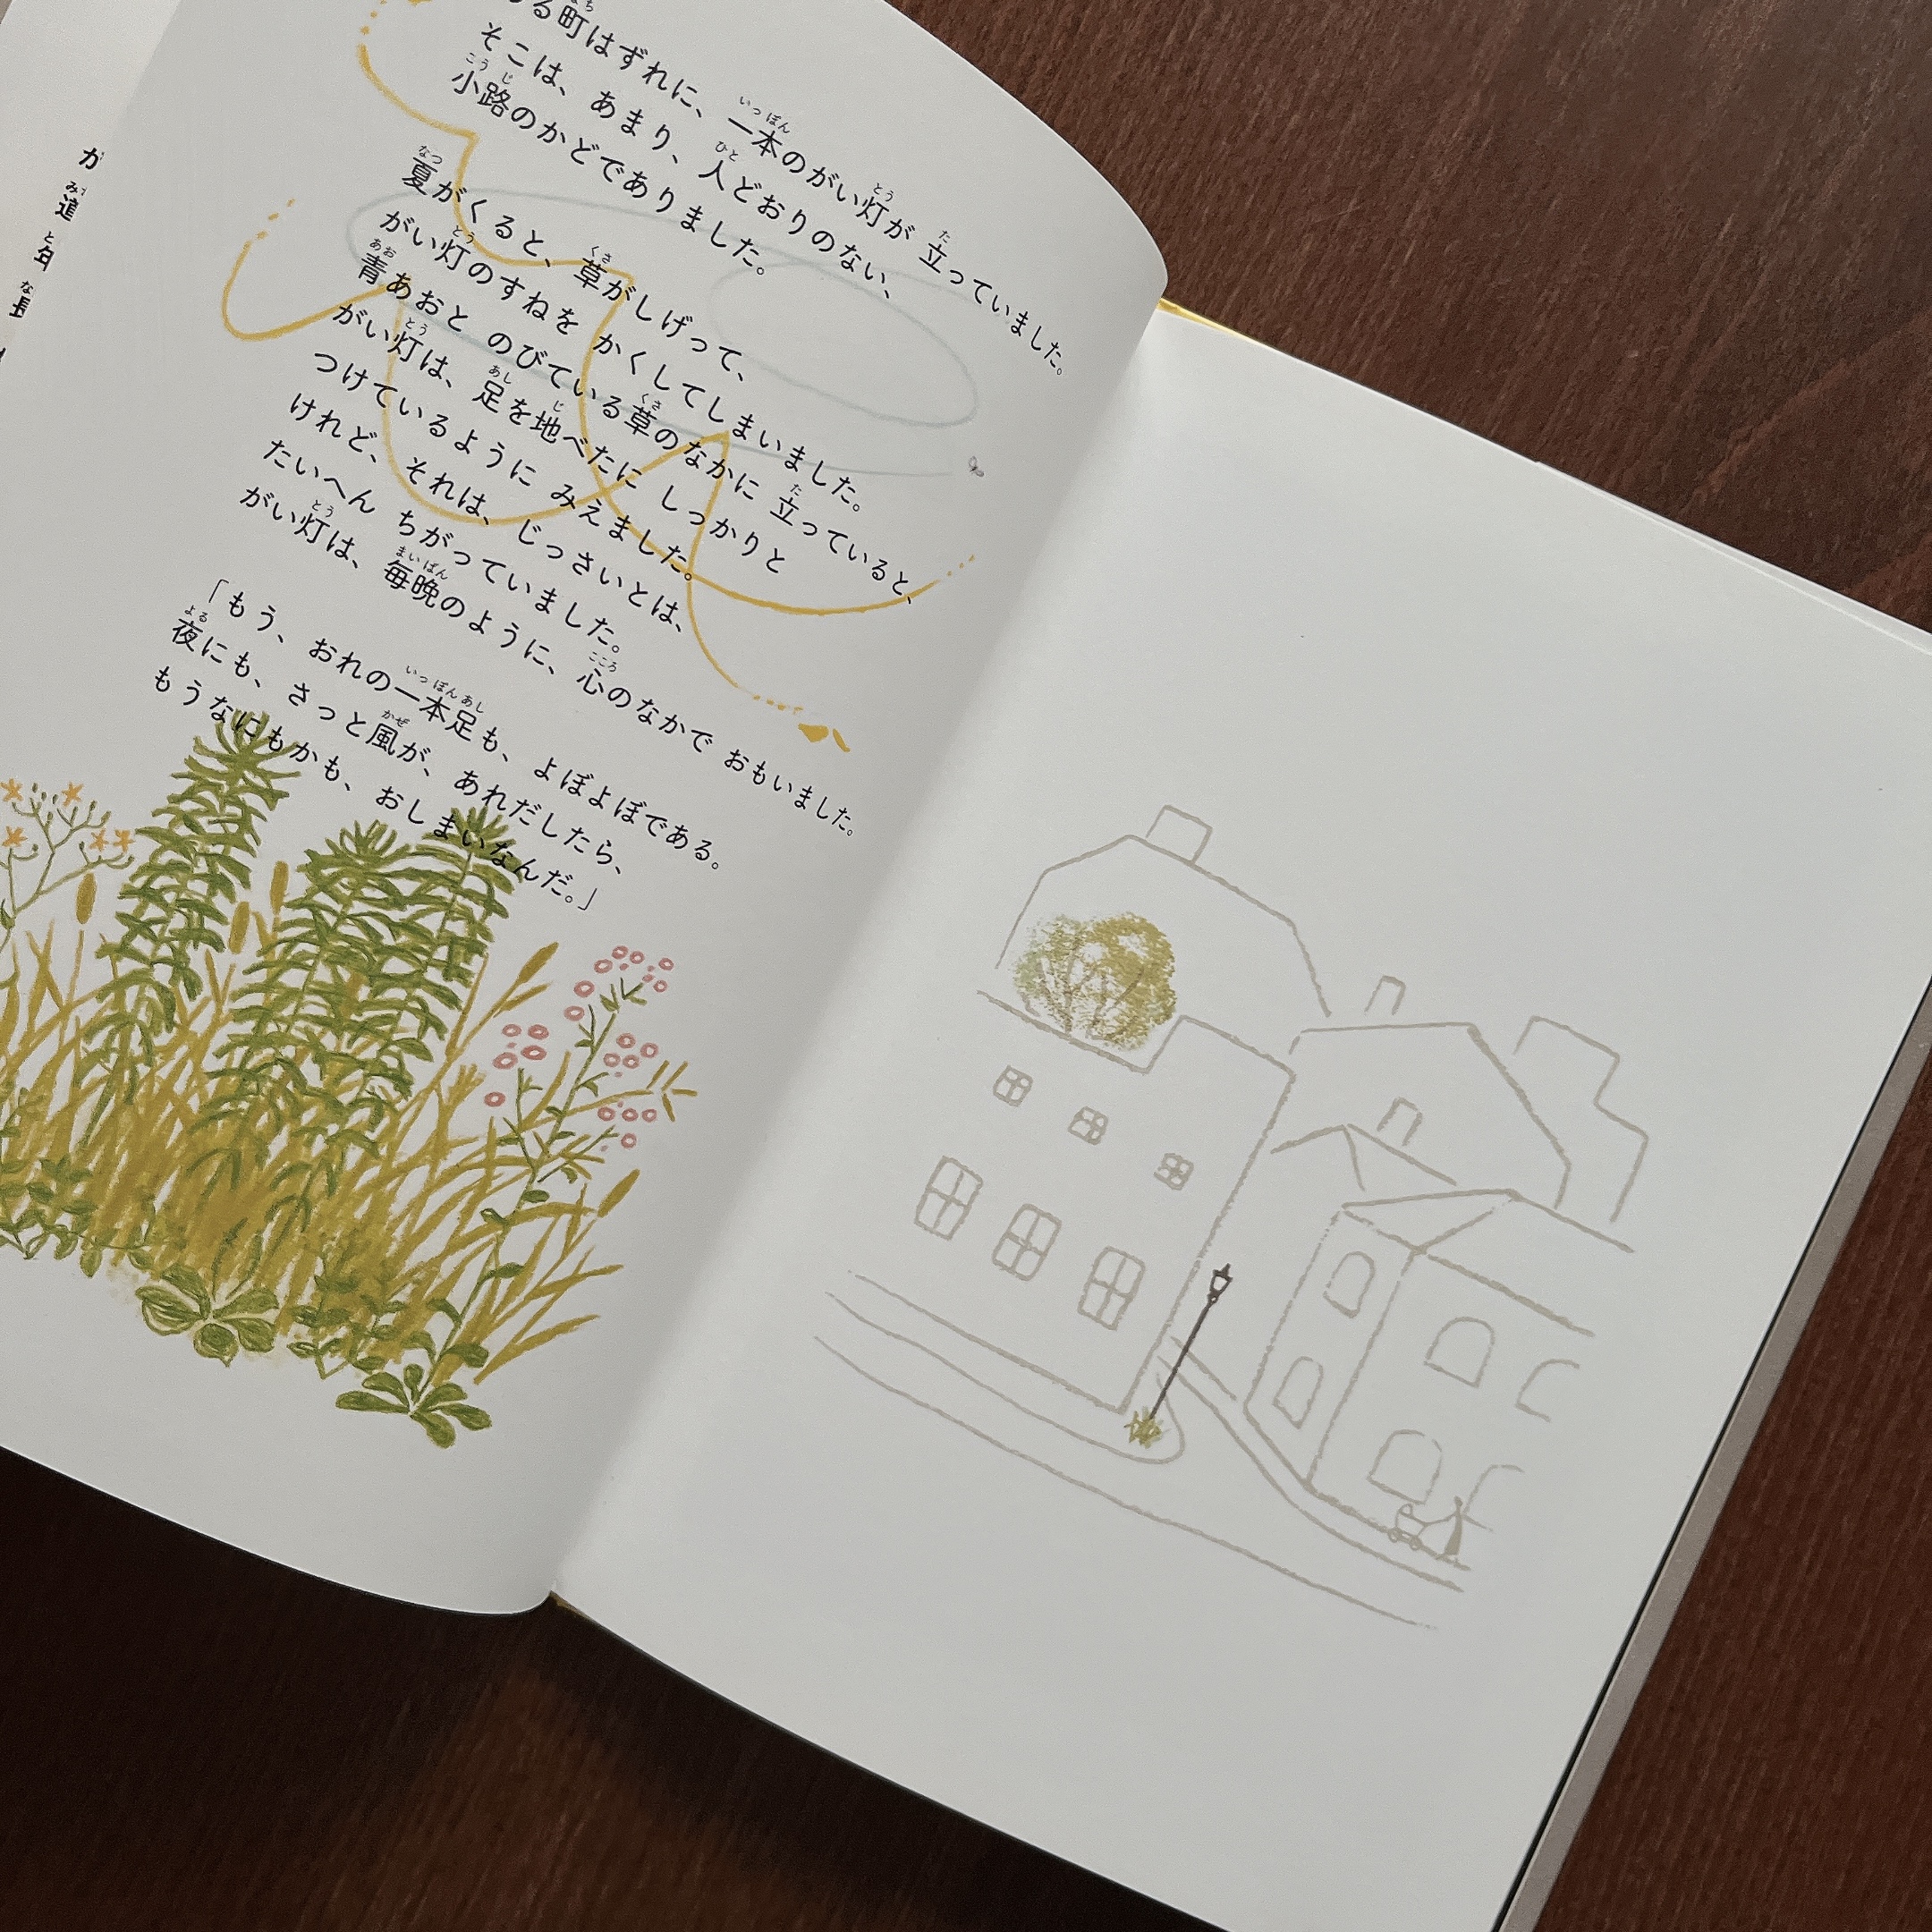 る町はずれに、一本のがい灯が 立っていました。
そこは、あまり、人どおりのない、
小路のかどでありました。
夏がくると、草がしげって、
がい灯のすねを かくしてしまいました。
青あおと のびている草のなかに 立っていると、
がい灯は、足を地べたに しっかりと
つけているように みえました。
けれど、それは、じっさいとは、
たいへん ちがっていました。
がい灯は、毎晩のように、心のなかで おもいました。
「もう、おれの一本足も、よぼよぼである。
夜にも、さっと風が、あれだしたら、
もうなにもかも、おしまいなんだ。」